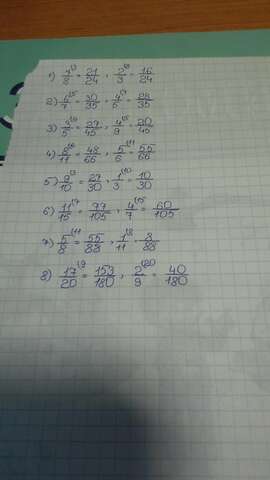 1) 7/8⁽³ = 21/24 , 2/3⁽⁸ = 16/24
2) 6/7⁽⁵ = 30/35 , 4/5⁽⁷ = 28/35
3) 3/5⁽⁹ = 27/45 , 4/9⁽⁵ = 20/45
4) 8/11⁽⁶ = 48/66 , 5/6⁽¹¹ = 55/66
5) 9/10⁽³ = 27/30 , 1/3⁽¹⁰ = 10/30
6) 11/15⁽⁷ = 77/105 , 4/7⁽¹⁵ = 60/105
7) 5/8⁽¹¹ = 55/88 , 1/11⁽⁸ = 8/88
8) 17/20⁽⁹ = 153/180 , 2/9⁽²⁰ = 40/180